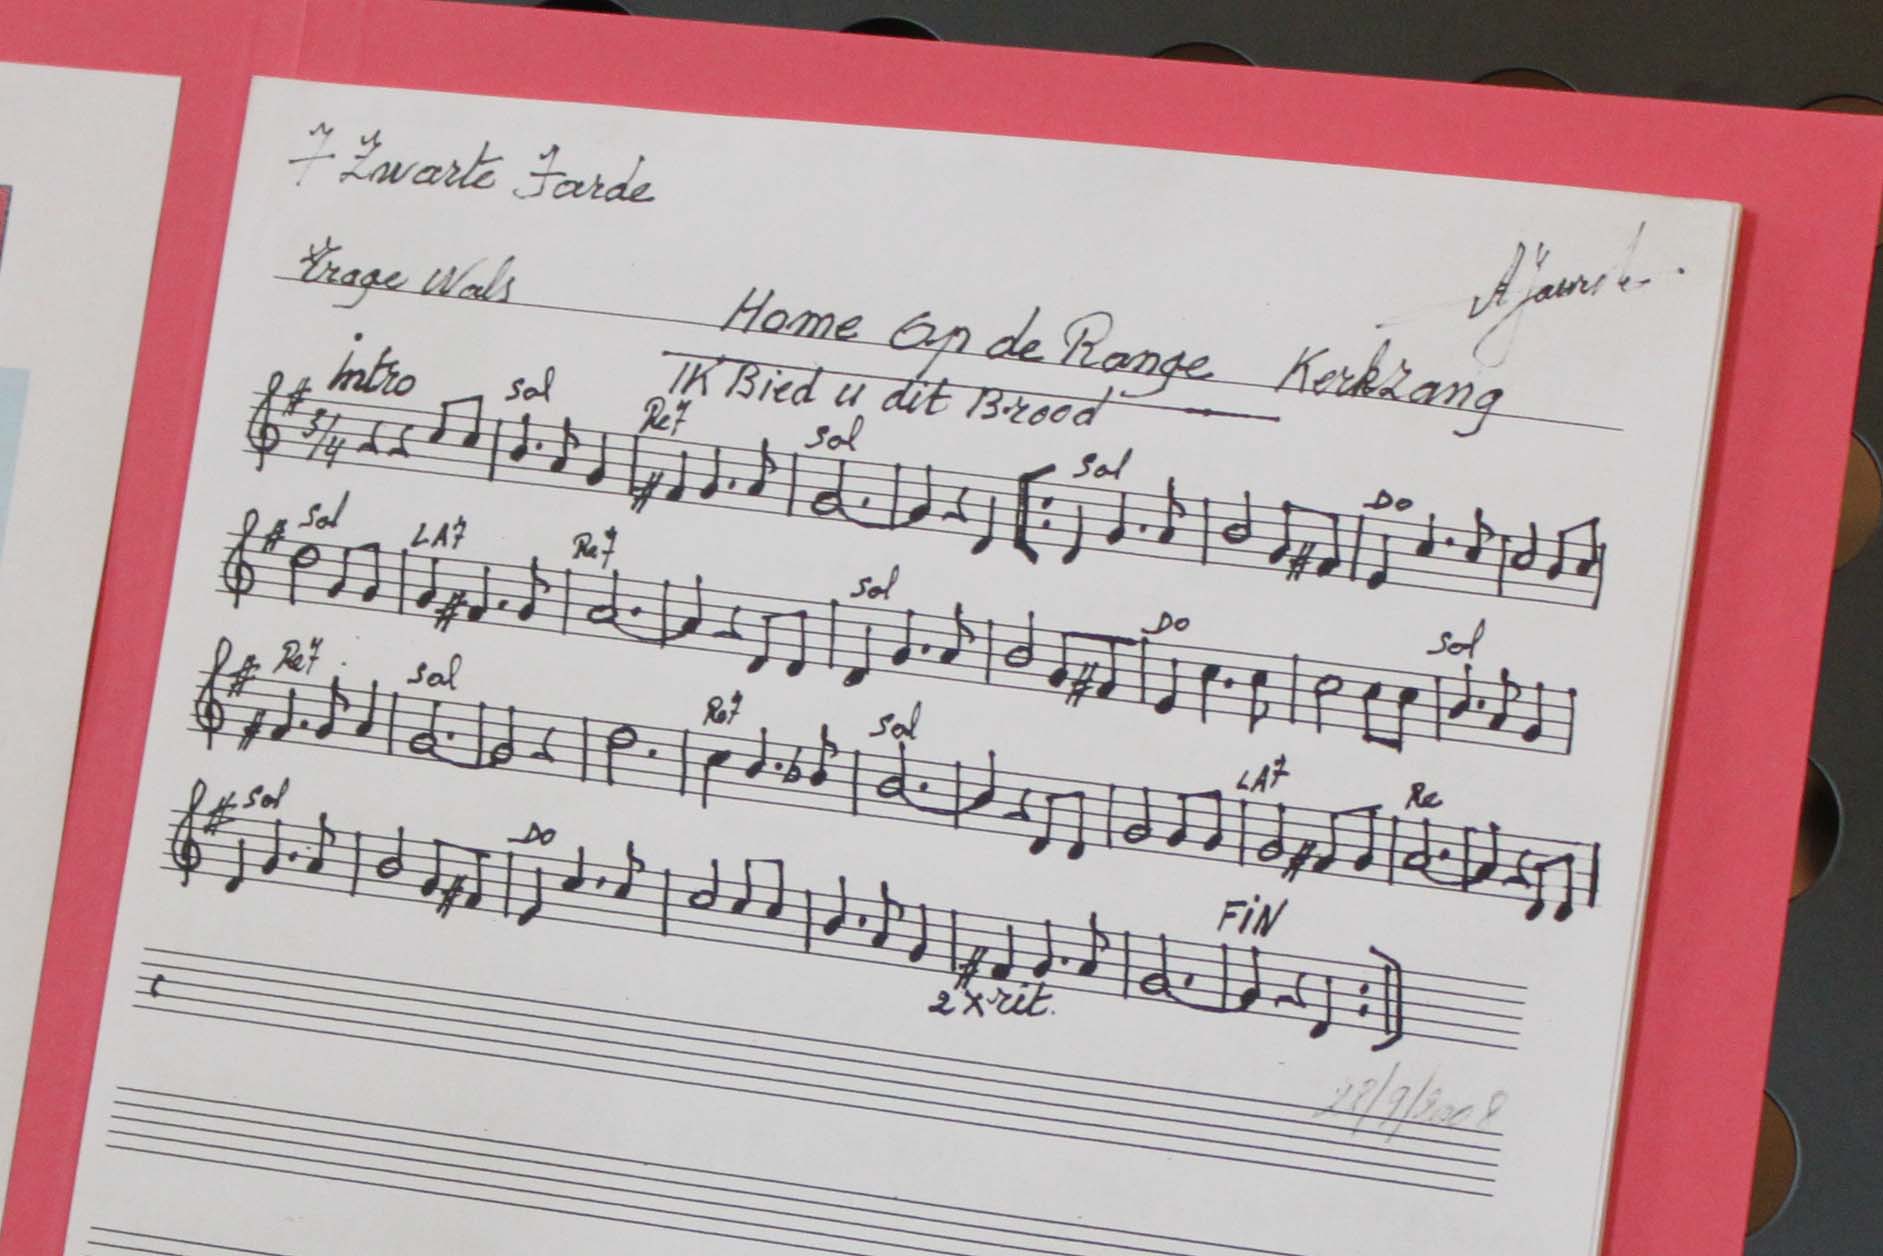 7 Zwarte Farde
Trage Wals
Home Op de Range Kerkzang
IK Bied u dit Brood
intro sol Re7 sol sol Do
3/4
sol LA7 Re7 sol Do sol
Re7 sol Re7 sol LA7 Re
sol Do FiN
2 x rit.
28/9/2008